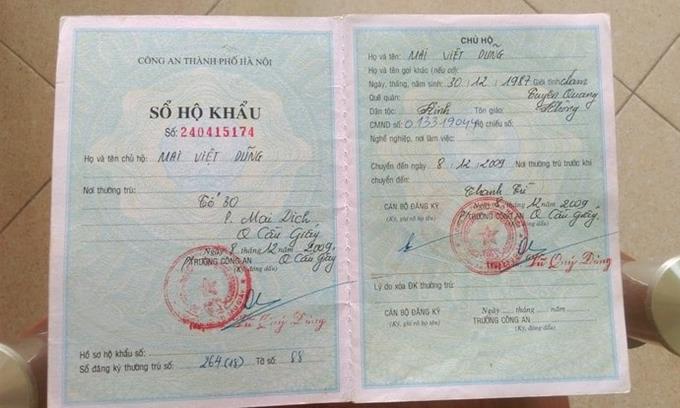 CÔNG AN THÀNH PHỐ HÀ NỘI
SỔ HỘ KHẨU
Số: 240415174
Họ và tên chủ hộ: MAI VIỆT DŨNG
Nơi thường trú:
Tổ 30
P. Mai Dịch
Q Cầu Giấy
Ngày 8 tháng 12 năm 2009
TRƯỞNG CÔNG AN Q Cầu Giấy
(Ký, đóng dấu)
Vũ Quý Dũng
Hồ sơ hộ khẩu số:
Sổ đăng ký thường trú số: 264(18) Tờ số: 88
CHỦ HỘ
Họ và tên: MAI VIỆT DŨNG
Họ và tên gọi khác (nếu có):
Ngày, tháng, năm sinh: 30.12.1987 Giới tính: Nam
Quê quán: Tuyên Quang
Dân tộc: Kinh Tôn giáo: Không
CMND số: Hộ chiếu số:
Nghề nghiệp, nơi làm việc:
Chuyển đến ngày 8.12.2009 Nơi thường trú trước khi
chuyển đến:
Thanh Trì
Ngày 8 tháng 12 năm 2009
CÁN BỘ ĐĂNG KÝ TRƯỞNG CÔNG AN Q Cầu Giấy
(Ký, ghi rõ họ tên)
Vũ Quý Dũng
Lý do xóa ĐK thường trú:
Ngày.... tháng.... năm....
CÁN BỘ ĐĂNG KÝ TRƯỞNG CÔNG AN
(Ký, ghi rõ họ tên) (Ký, đóng dấu)